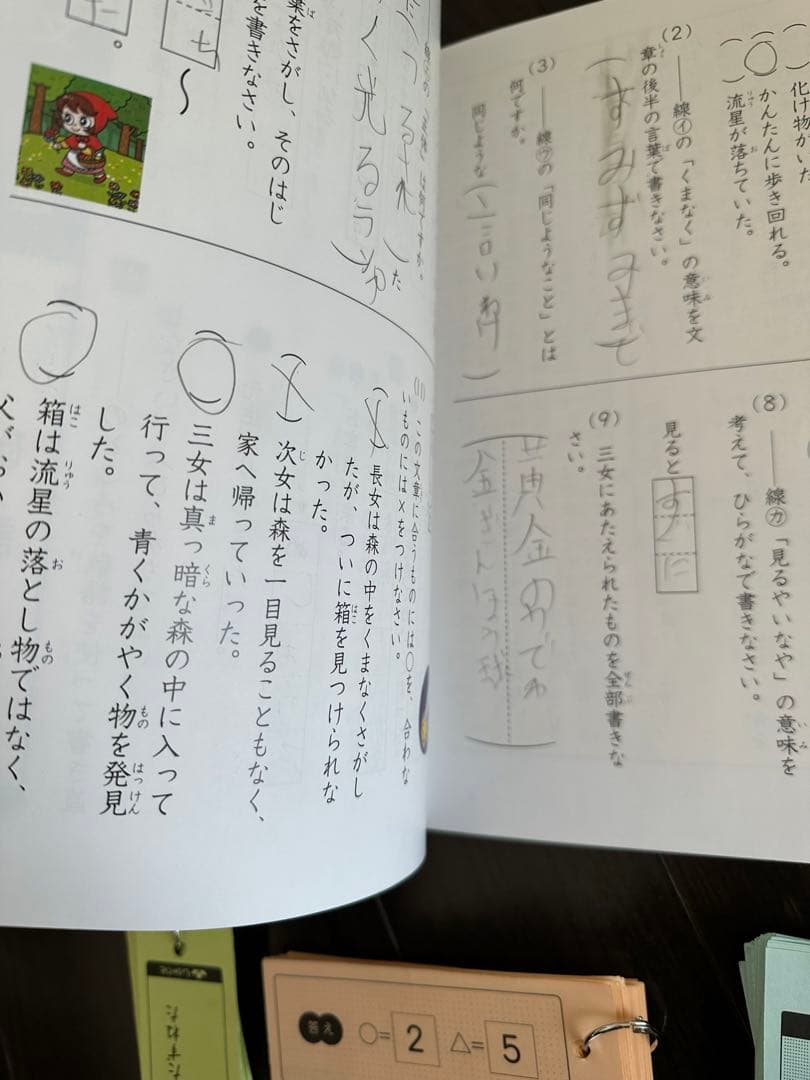 化け物がいた
(○)かんたんに歩き回れる。
( )流星が落ちていた。
(2) ——線㋑の「くまなく」の意味を文
章の後半の言葉で書きなさい。
(すみずみまで)
(3) ——線㋒の「同じようなこと」とは
何ですか。
同じような(言いわけ)
(8) ——線㋕「見るやいなや」の意味を
考えて、ひらがなで書きなさい。
見るとすぐに
(9) 三女にあたえられたものを全部書きな
さい。
黄金のうでわ
葉をさがし、そのはじ
を書きなさい。
〜
。
く光る
)た
この文章に合うものには○を、合わな
いものには×をつけなさい。
(×)長女は森の中をくまなくさがし
たが、ついに箱を見つけられな
かった。
(×)次女は森を一目見ることもなく、
家へ帰っていった。
(○)三女は真っ暗な森の中に入って
行って、青くかがやく物を発見
した。
(○)箱は流星の落とし物ではなく、
たずねた
答え ○=2 △=5